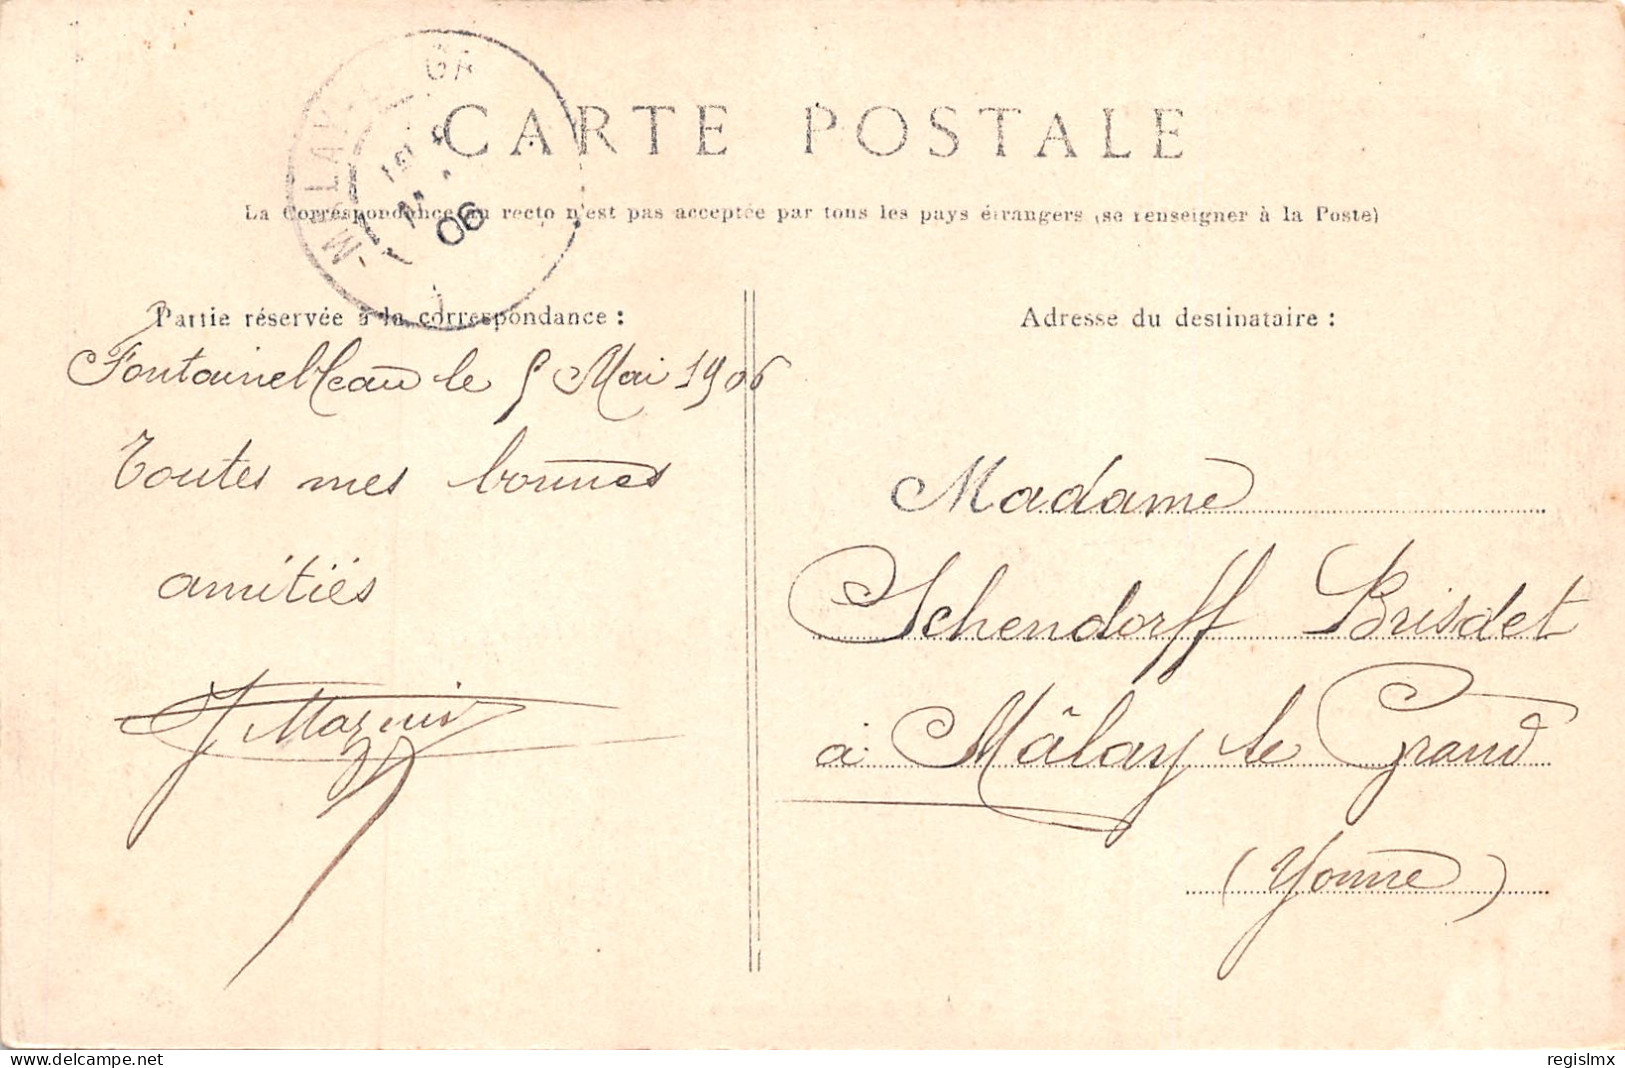 CARTE POSTALE
La Correspondance au recto n'est pas acceptée par tous les pays étrangers (se renseigner à la Poste)
MALAY GR
06
Partie réservée à la correspondance :
Fontainebleau le 5 Mai 1906
Toutes mes bonnes
amitiés
Adresse du destinataire :
Madame
Schendorff Brisdet
à Mâlay le Grand
(Yonne)
delcampe.net
regislmx